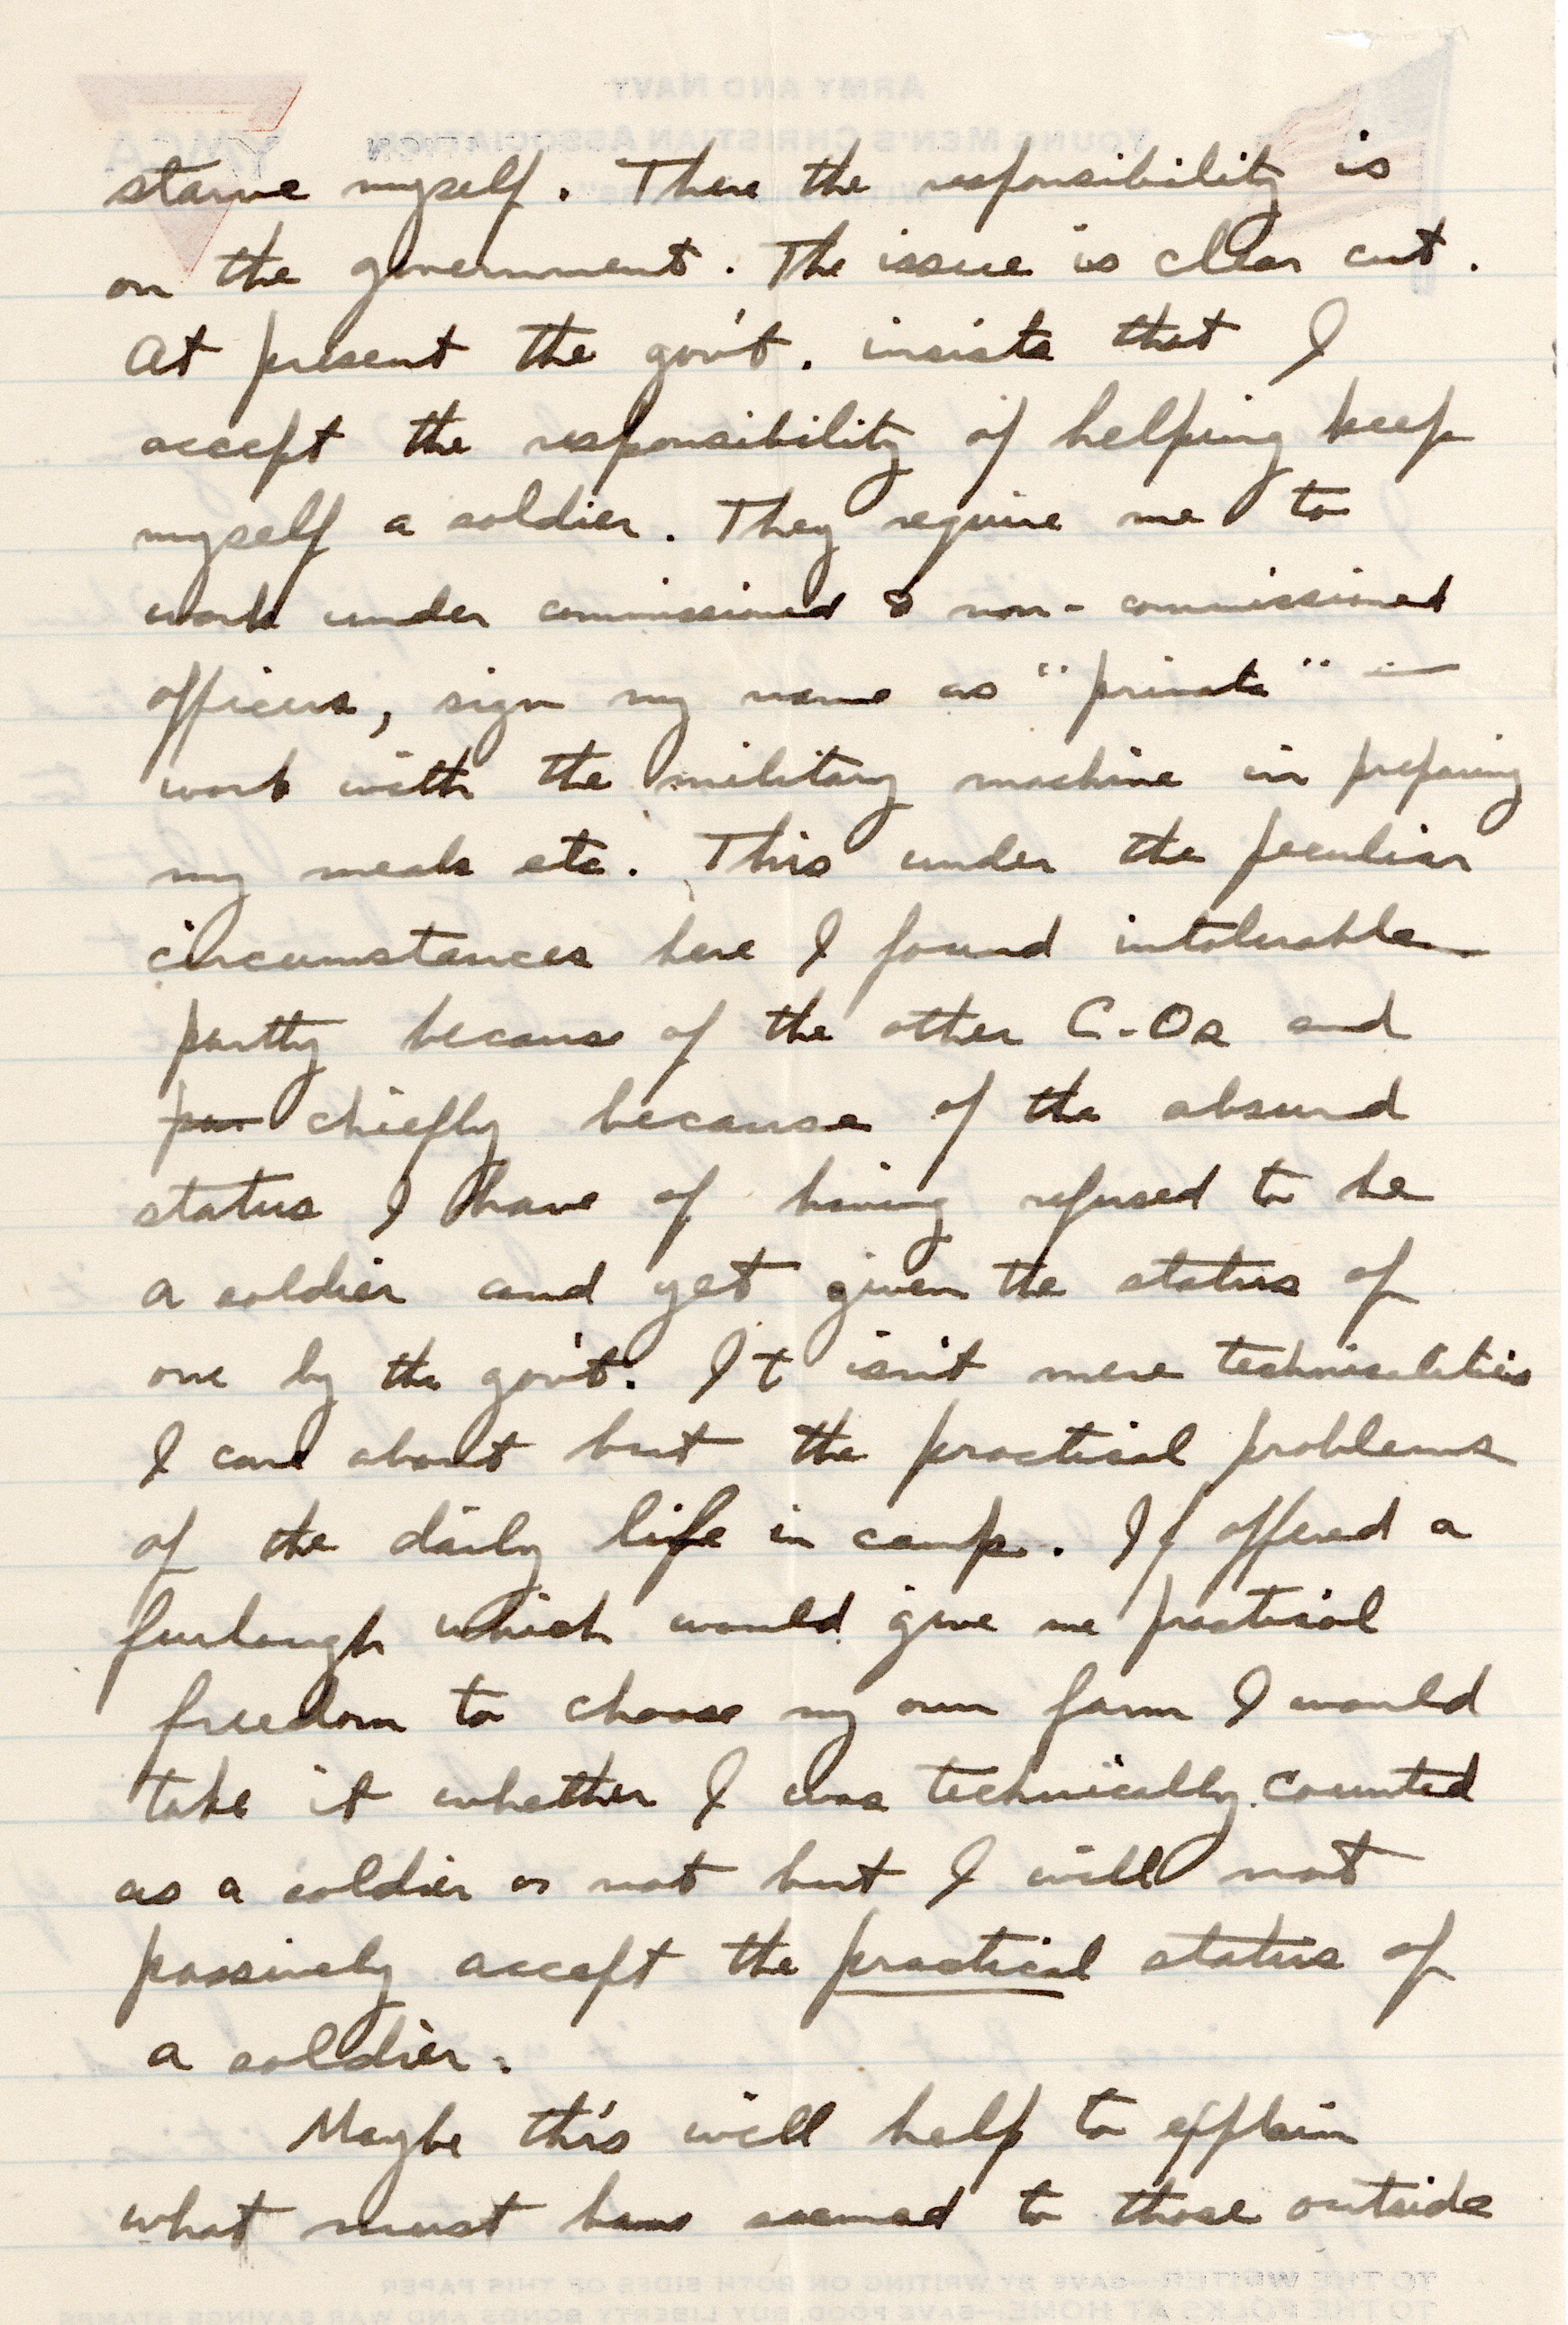 starve myself. There the responsibility is
on the government. The issue is clear cut.
At present the gov't. insists that I
accept the responsibility of helping keep
myself a soldier. They require me to
work under commissioned & non-commissioned
officers, sign my name as "private" —
work with the military machine in preparing
my meals etc. This under the peculiar
circumstances here I found intolerable
partly because of the other C-Os and
par chiefly because of the absurd
status I have of having refused to be
a soldier and yet given the status of
one by the gov't. It isn't mere technicalities
I care about but the practical problems
of the daily life in camp. If offered a
furlough which would give me practical
freedom to choose my own farm I would
take it whether I was technically counted
as a soldier or not but I will not
passively accept the practical status of
a soldier.
Maybe this will help to explain
what must have seemed to those outside